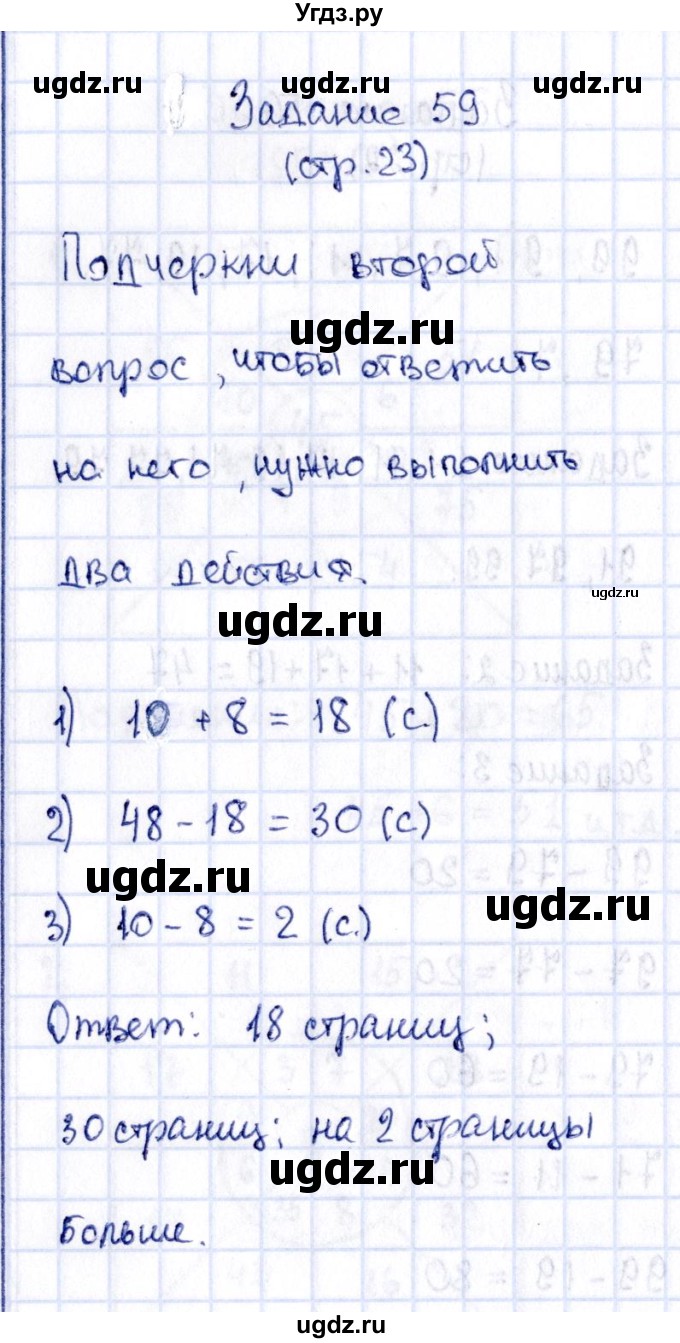 Угдз.ру
ugdz.ru ugdz.ru ugdz.ru
Задание 59
(стр. 23)
Подчеркни второй
ugdz.ru
вопрос, чтобы ответить
на него, нужно выполнить
два действия.
ugdz.ru
ugdz.ru
1) 10 + 8 = 18 (с.)
2) 48 - 18 = 30 (с)
ugdz.ru
ugdz.ru
3) 10 - 8 = 2 (с.)
Ответ: 18 страниц;
30 страниц; на 2 страницы
ugdz.ru
больше.
ugdz.ru ugdz.ru